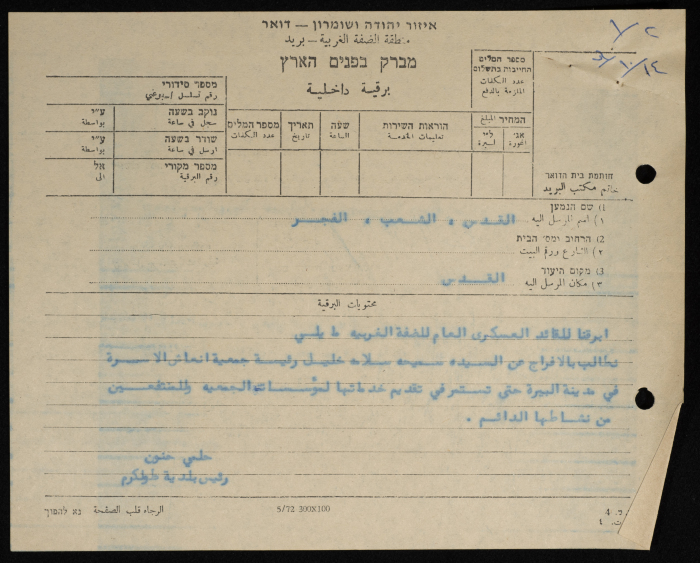 איזור יהודה ושומרון – דואר
منطقة الضفة الغربية – بريد
מברק בפנים הארץ
برقية داخلية
מספר המלים
החייבות בתשלום
عدد الكلمات
الملزمة بالدفع
המחיר المبلغ
אג'
اغورة
ל"י
ليرة
הוראות השירות
تعليمات الخدمة
שעה
الساعة
תאריך
تاريخ
מספר המלים
عدد الكلمات
מספר סידורי
رقم تسلسل اسبوعي
נוקב בשעה
سجل في ساعة
ע"י
بواسطة
שודר בשעה
ارسل في ساعة
ע"י
بواسطة
מספר מקורי
رقم البرقية
אל
الى
חותמת בית הדואר
خاتم مكتب البريد
1) שם הנמען
١) اسم المرسل اليه
القدس ، الشعب ، الفجر
2) הרחוב ומס' הבית
٢) الشارع ورقم البيت
3) מקום היעוד
٣) مكان المرسل اليه
القدس
محتويات البرقية
ابرقنا للقائد العسكرى العام للضفة الغربيه ما يلي
نطالب بالافراج عن السيده سميحه سلامه خليل رئيسة جمعية انعاش الاسرة
في مدينة البيرة حتى تستمر في تقديم خدماتها لمؤسسات الجمعيه وللمنتفعين
من نشاطها الدائم .
حلمي حنون
رئيس بلدية طولكرم
5/72 300X100
الرجاء قلب الصفحة
נא להפוך